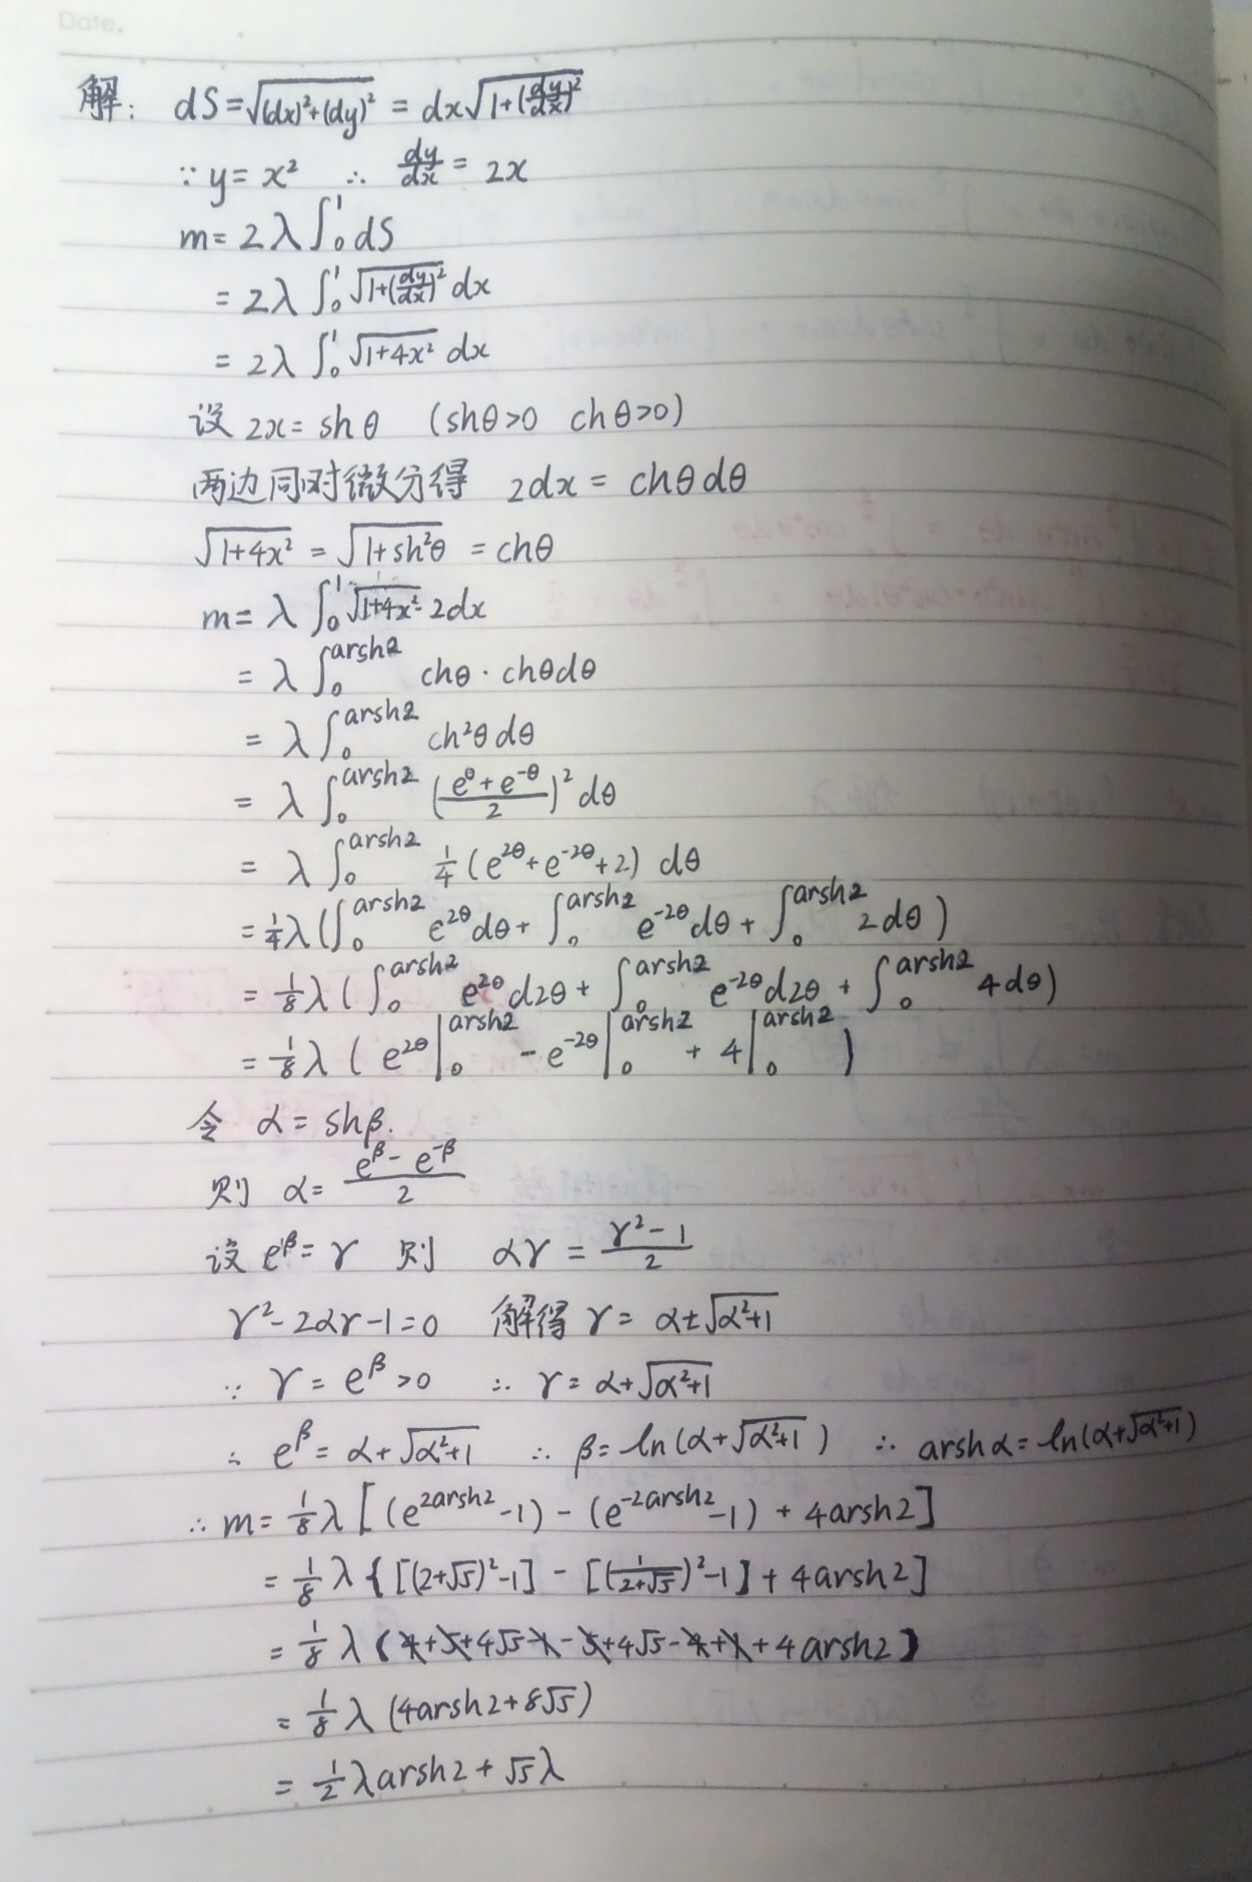 Date.
解: dS=√((dx)²+(dy)²) = dx√(1+(dy/dx)²)
∵ y= x² ∴ dy/dx = 2x
m= 2λ∫₀¹dS
= 2λ ∫₀¹ √(1+(dy/dx)²) dx
= 2λ ∫₀¹ √(1+4x²) dx
设 2x= shθ (shθ>0 chθ>0)
两边同时微分得 2dx = chθdθ
√(1+4x²) = √(1+sh²θ) = chθ
m= λ ∫₀¹ √(1+4x²) · 2dx
= λ ∫₀^(arsh2) chθ · chθdθ
= λ ∫₀^(arsh2) ch²θ dθ
= λ ∫₀^(arsh2) ((e^θ + e^(-θ))/2)² dθ
= λ ∫₀^(arsh2) 1/4 (e^(2θ)+e^(-2θ)+2) dθ
= 1/4 λ(∫₀^(arsh2) e^(2θ)dθ+ ∫₀^(arsh2) e^(-2θ)dθ+ ∫₀^(arsh2) 2dθ)
= 1/8 λ(∫₀^(arsh2) e^(2θ)d2θ+ ∫₀^(arsh2) e^(-2θ)d2θ + ∫₀^(arsh2) 4dθ)
= 1/8 λ ( e^(2θ)|₀^(arsh2) - e^(-2θ)|₀^(arsh2) + 4|₀^(arsh2) )
令 α= shβ.
则 α= (e^β - e^(-β))/2
设 e^β= γ 则 αγ = (γ²-1)/2
γ²-2αγ-1=0 解得 γ= α±√(α²+1)
∵ γ= e^β>0 ∴ γ= α+√(α²+1)
∴ e^β= α+√(α²+1) ∴ β= ln(α+√(α²+1)) ∴ arshα= ln(α+√(α²+1))
∴ m= 1/8 λ [(e^(2arsh2)-1) - (e^(-2arsh2)-1) + 4arsh2]
= 1/8 λ {[(2+√5)²-1] - [(1/(2+√5))²-1] + 4arsh2]
= 1/8 λ (4+5+4√5-1-5+4√5-4+1+4arsh2)
= 1/8 λ (4arsh2+8√5)
= 1/2 λarsh2+√5λ